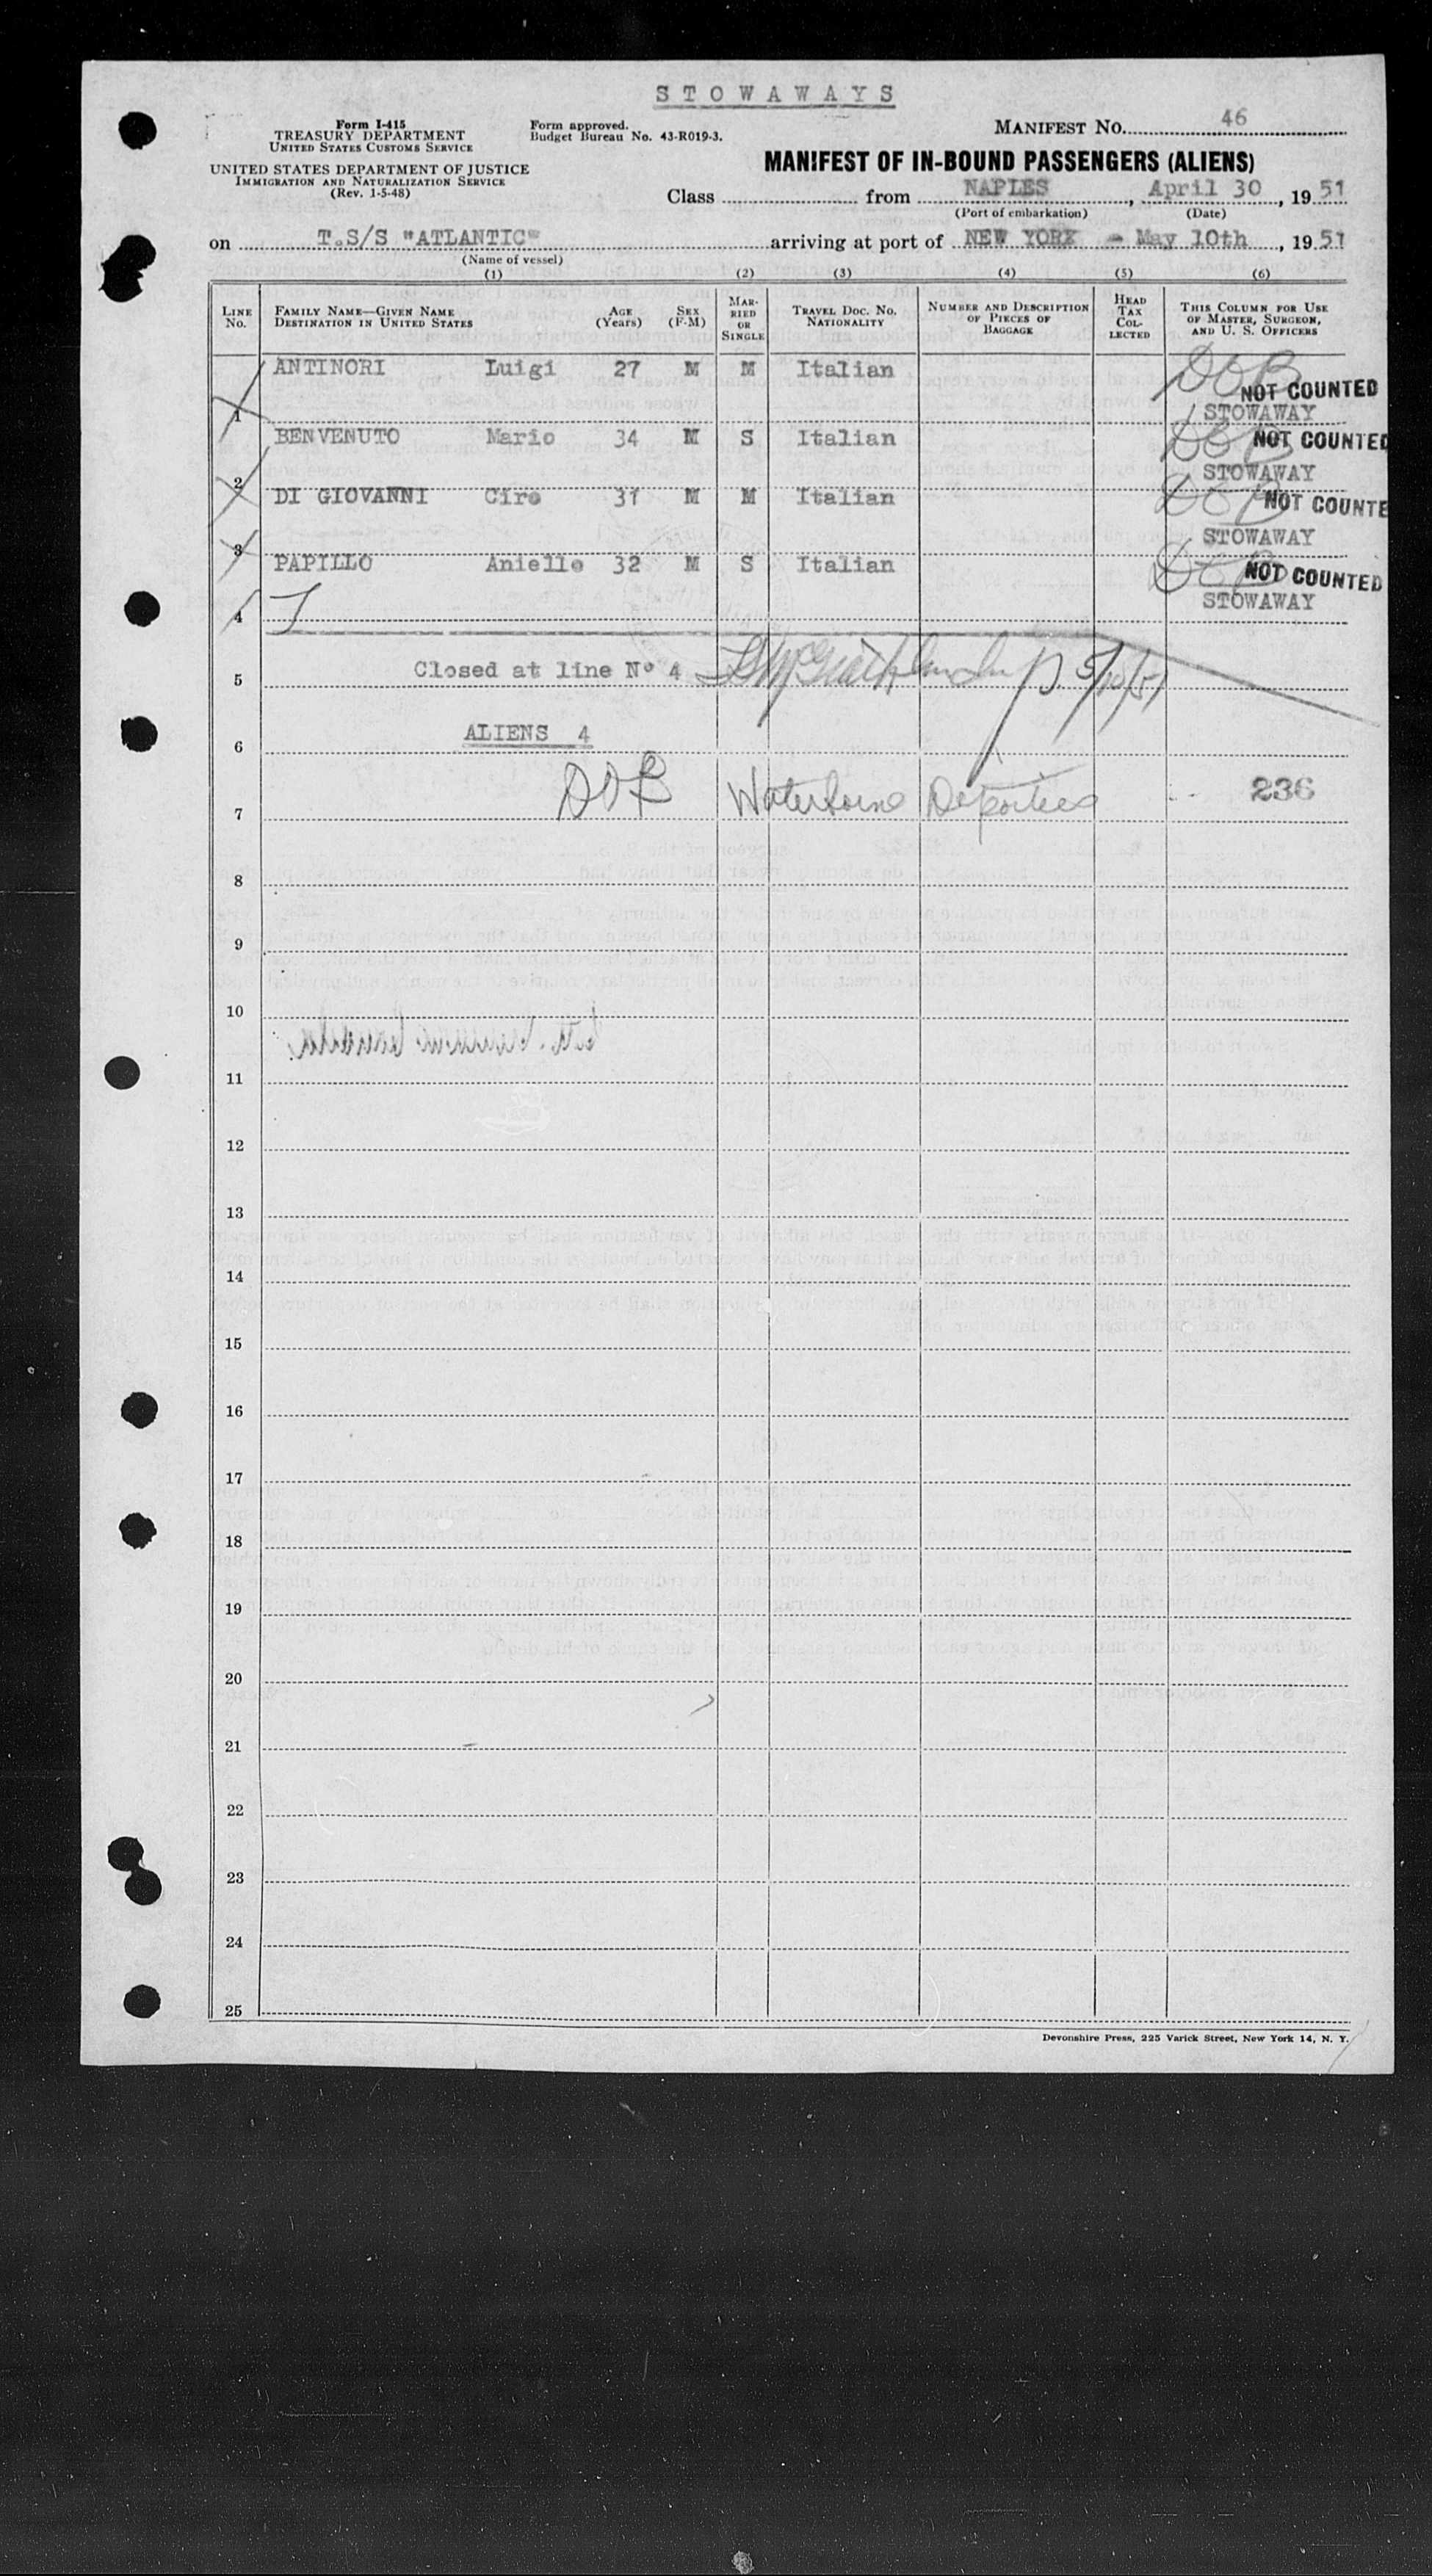 STOWAWAYS
Form I-415
TREASURY DEPARTMENT
UNITED STATES CUSTOMS SERVICE
UNITED STATES DEPARTMENT OF JUSTICE
IMMIGRATION AND NATURALIZATION SERVICE
(Rev. 1-5-48)
Form approved.
Budget Bureau No. 43-R019-3.
MANIFEST No. 46
MANIFEST OF IN-BOUND PASSENGERS (ALIENS)
Class from NAPLES, April 30, 1951
(Port of embarkation) (Date)
on T.S/S "ATLANTIC" arriving at port of NEW YORK - May 10th, 1951
(Name of vessel)
(1) (2) (3) (4) (5) (6)
LINE No. FAMILY NAME—GIVEN NAME DESTINATION IN UNITED STATES AGE (Years) SEX (F-M) MARRIED OR SINGLE TRAVEL DOC. NO. NATIONALITY NUMBER AND DESCRIPTION OF PIECES OF BAGGAGE HEAD TAX COLLECTED THIS COLUMN FOR USE OF MASTER, SURGEON, AND U. S. OFFICERS
ANTINORI Luigi 27 M M Italian DOB NOT COUNTED
1 STOWAWAY
BENVENUTO Mario 34 M S Italian DOB NOT COUNTED
2 STOWAWAY
DI GIOVANNI Ciro 31 M M Italian DOB NOT COUNTE
3 STOWAWAY
PAPILLO Aniello 32 M S Italian DOB NOT COUNTED
4 STOWAWAY
5 Closed at line Nº 4 5/10/51
6 ALIENS 4
7 DOB Waterborne Deportees 236
8
9
10
11
12
13
14
15
16
17
18
19
20
21
22
23
24
25
Devonshire Press, 225 Varick Street, New York 14, N. Y.